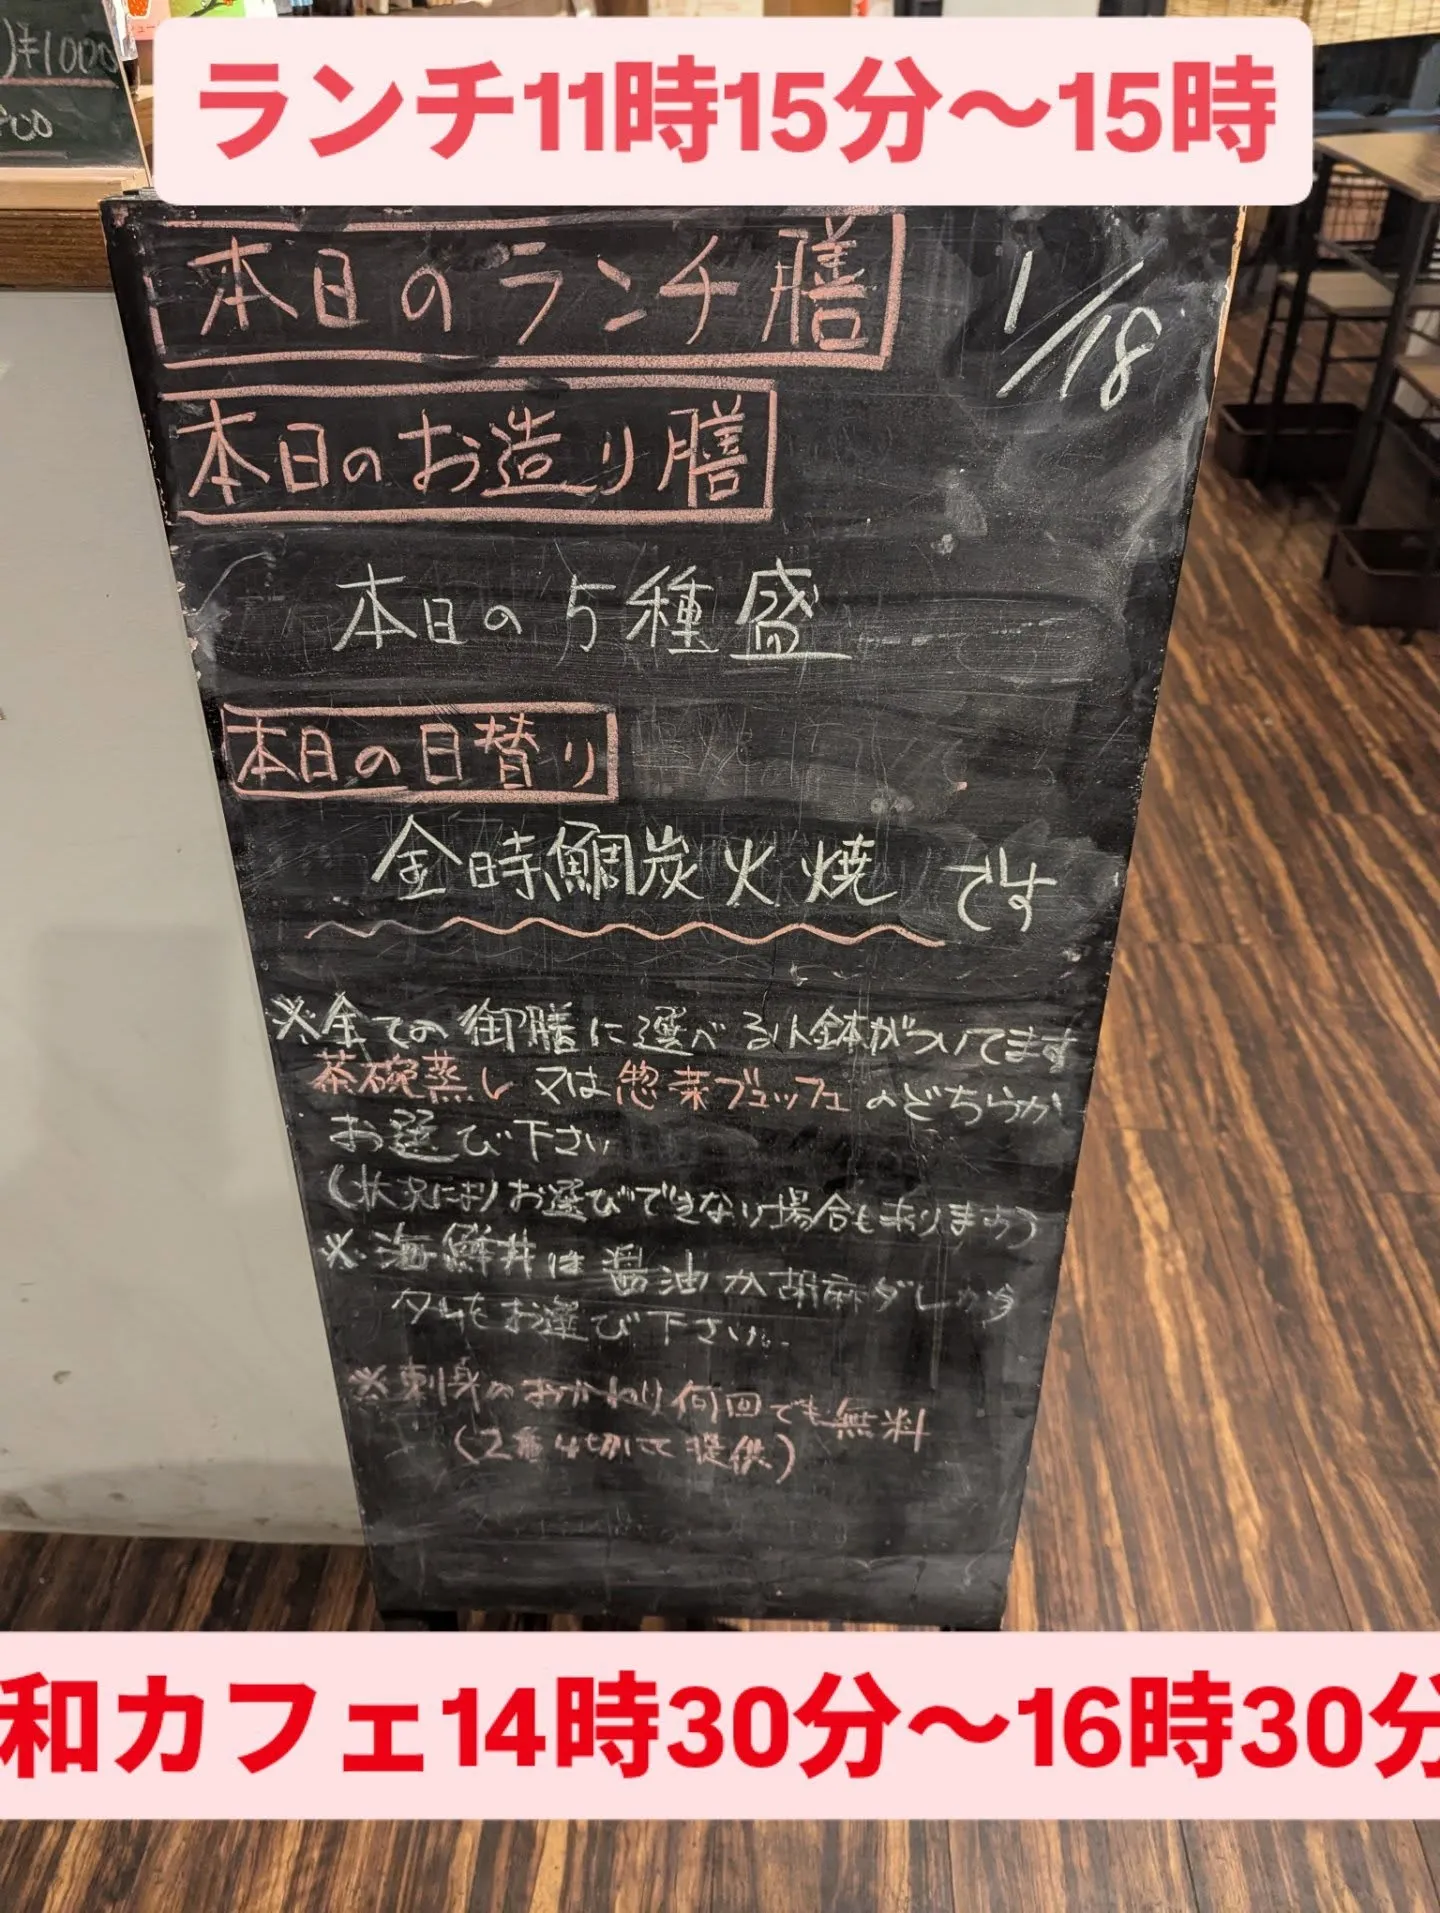 )¥1000
ランチ11時15分〜15時
本日のランチ膳 1/18
本日のお造り膳
本日の5種盛
本日の日替り
金時鯛炭火焼です
※全ての御膳に選べる小鉢がついてます
茶碗蒸し又は惣菜ブュッフェのどちらか
お選び下さい
(状況によりお選びできない場合もあります)
※海鮮丼は醤油か胡麻ダレから
タレをお選び下さい。
※刺身のおかわり何回でも無料
(2種4切にて提供)
和カフェ14時30分〜16時30分